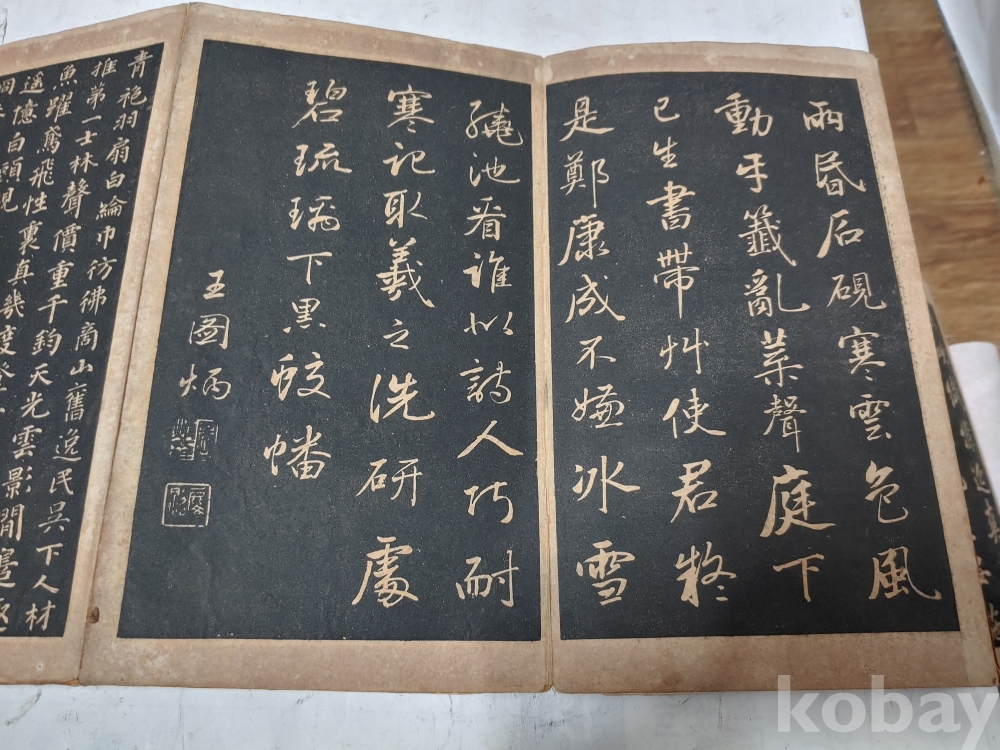 雨昏石硯寒雲色風
動牙籤亂葉聲庭下
已生書帶艸使君疑
是鄭康成不嫌冰雪
繞池看誰似詩人巧耐
寒記取羲之洗研處
碧琉璃下黑蛟蟠
王圖炳
青袍羽扇白綸巾彷彿商山舊逸民吳下人材
推第一士林聲價重千鈞天光雲影閒
魚躍鳶飛性裏真幾度
遙憶白頭
kobay